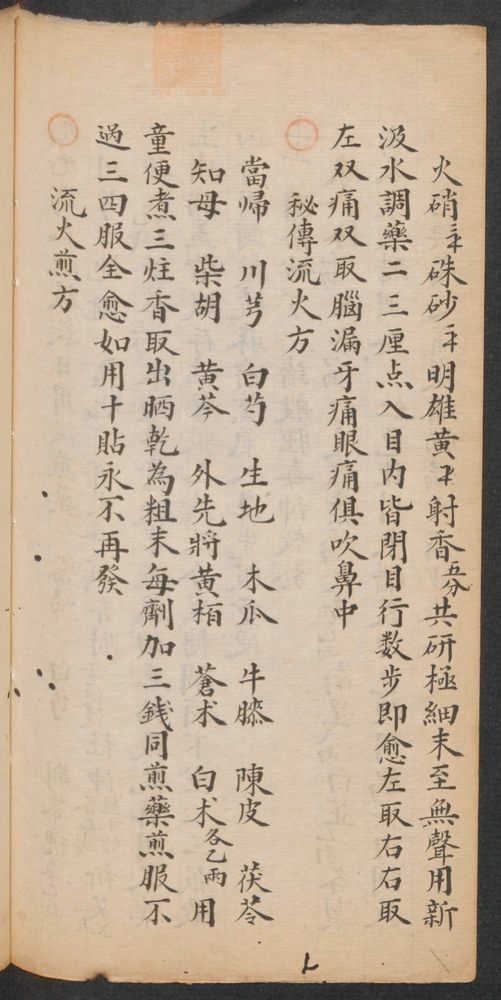 火硝三千硃砂二千明雄黃一千射香五分共研極細末至無聲用新
汲水調藥二三厘点入目内皆閉目行数步即愈左取右右取
左双痛双取腦漏牙痛眼痛俱吹鼻中
秘傳流火方
當歸 川芎 白芍 生地 木瓜 牛膝 陳皮 茯苓
知母 柴胡 黄芩 外先將黄栢 蒼术 白术各乙兩用
童便煮三炷香取出晒乾為粗末每劑加三錢同煎藥煎服不
過三四服全愈如用十貼永不再發
流火煎方